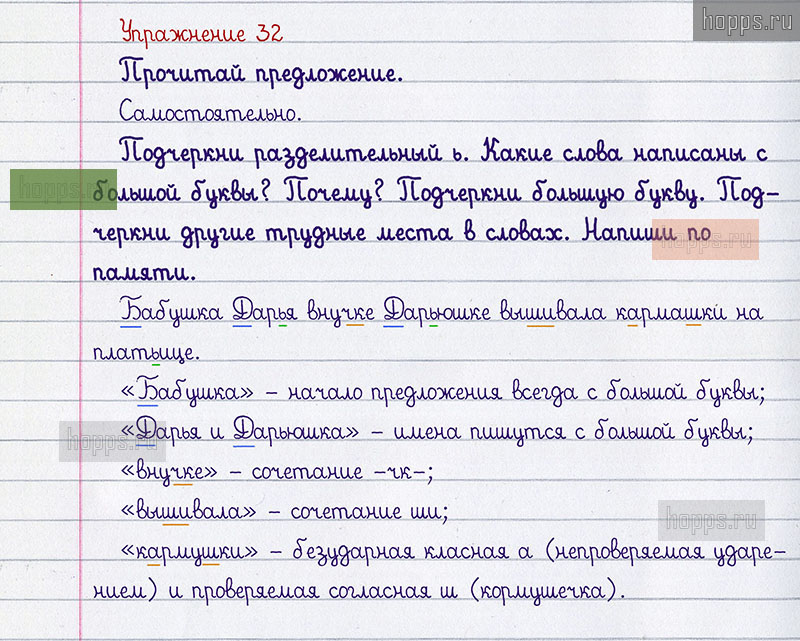 hopps.ru
Упражнение 32
Прочитай предложение.
Самостоятельно.
Подчеркни разделительный ь. Какие слова написаны с
большой буквы? Почему? Подчеркни большую букву. Под-
черкни другие трудные места в словах. Напиши по
памяти.
Бабушка Дарья внучке Дарьюшке вышивала кармашки на
платьице.
«Бабушка» – начало предложения всегда с большой буквы;
«Дарья и Дарьюшка» – имена пишутся с большой буквы;
«внучке» – сочетание -чк-;
«вышивала» – сочетание ши;
«кармушки» – безударная класная а (непроверяемая ударе-
нием) и проверяемая согласная ш (кормушечка).
hopps.ru
hopps.ru
hopps.ru
hopps.ru